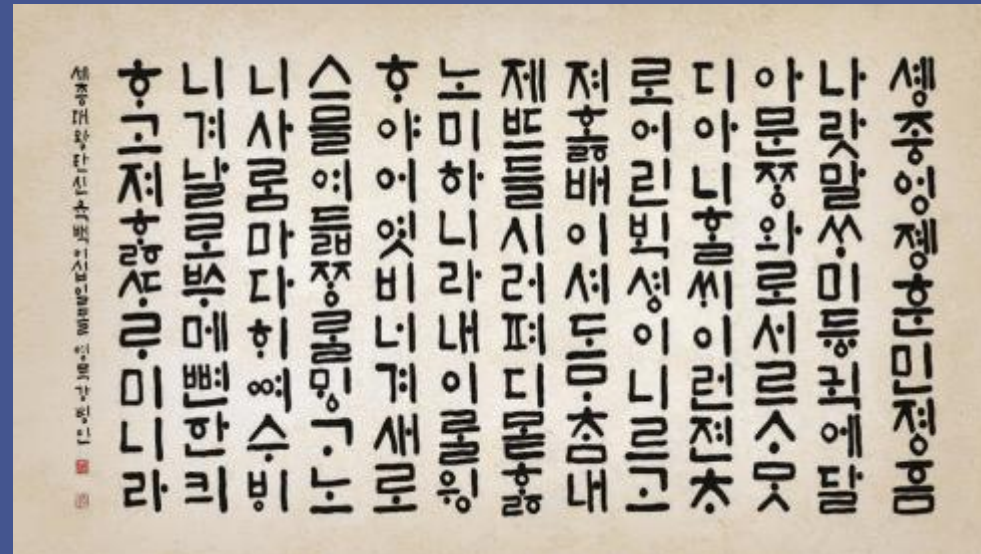 솅종ᅌᅥᆼ졩훈민졍ᅙᅳᆷ
나랏말ᄊᆞ미듕귁에달
아문ᄍᆞᆼ와로서르ᄉᆞᄆᆞᆺ
디아니ᄒᆞᆯᄊᆡ이런젼ᄎᆞ
로어린ᄇᆡᆨ셩이니르고
져ᄒᆞᇙ배이셔도ᄆᆞᄎᆞᆷ내
제ᄠᅳ들시러펴디몯ᄒᆞᇙ
노미하니라내이ᄅᆞᆯ윙
ᄒᆞ야어엿비너겨새로
스믈여듧ᄍᆞᆼᄅᆞᆯᄆᆡᇰᄀᆞ노
니사ᄅᆞᆷ마다ᄒᆡᅇᅧ수ᄫᅵ
니겨날로ᄡᅮ메뼌한킈
ᄒᆞ고져ᄒᆞᇙᄯᆞᄅᆞ미니라
세종대왕탄신육백이십일돌 영묵강병인